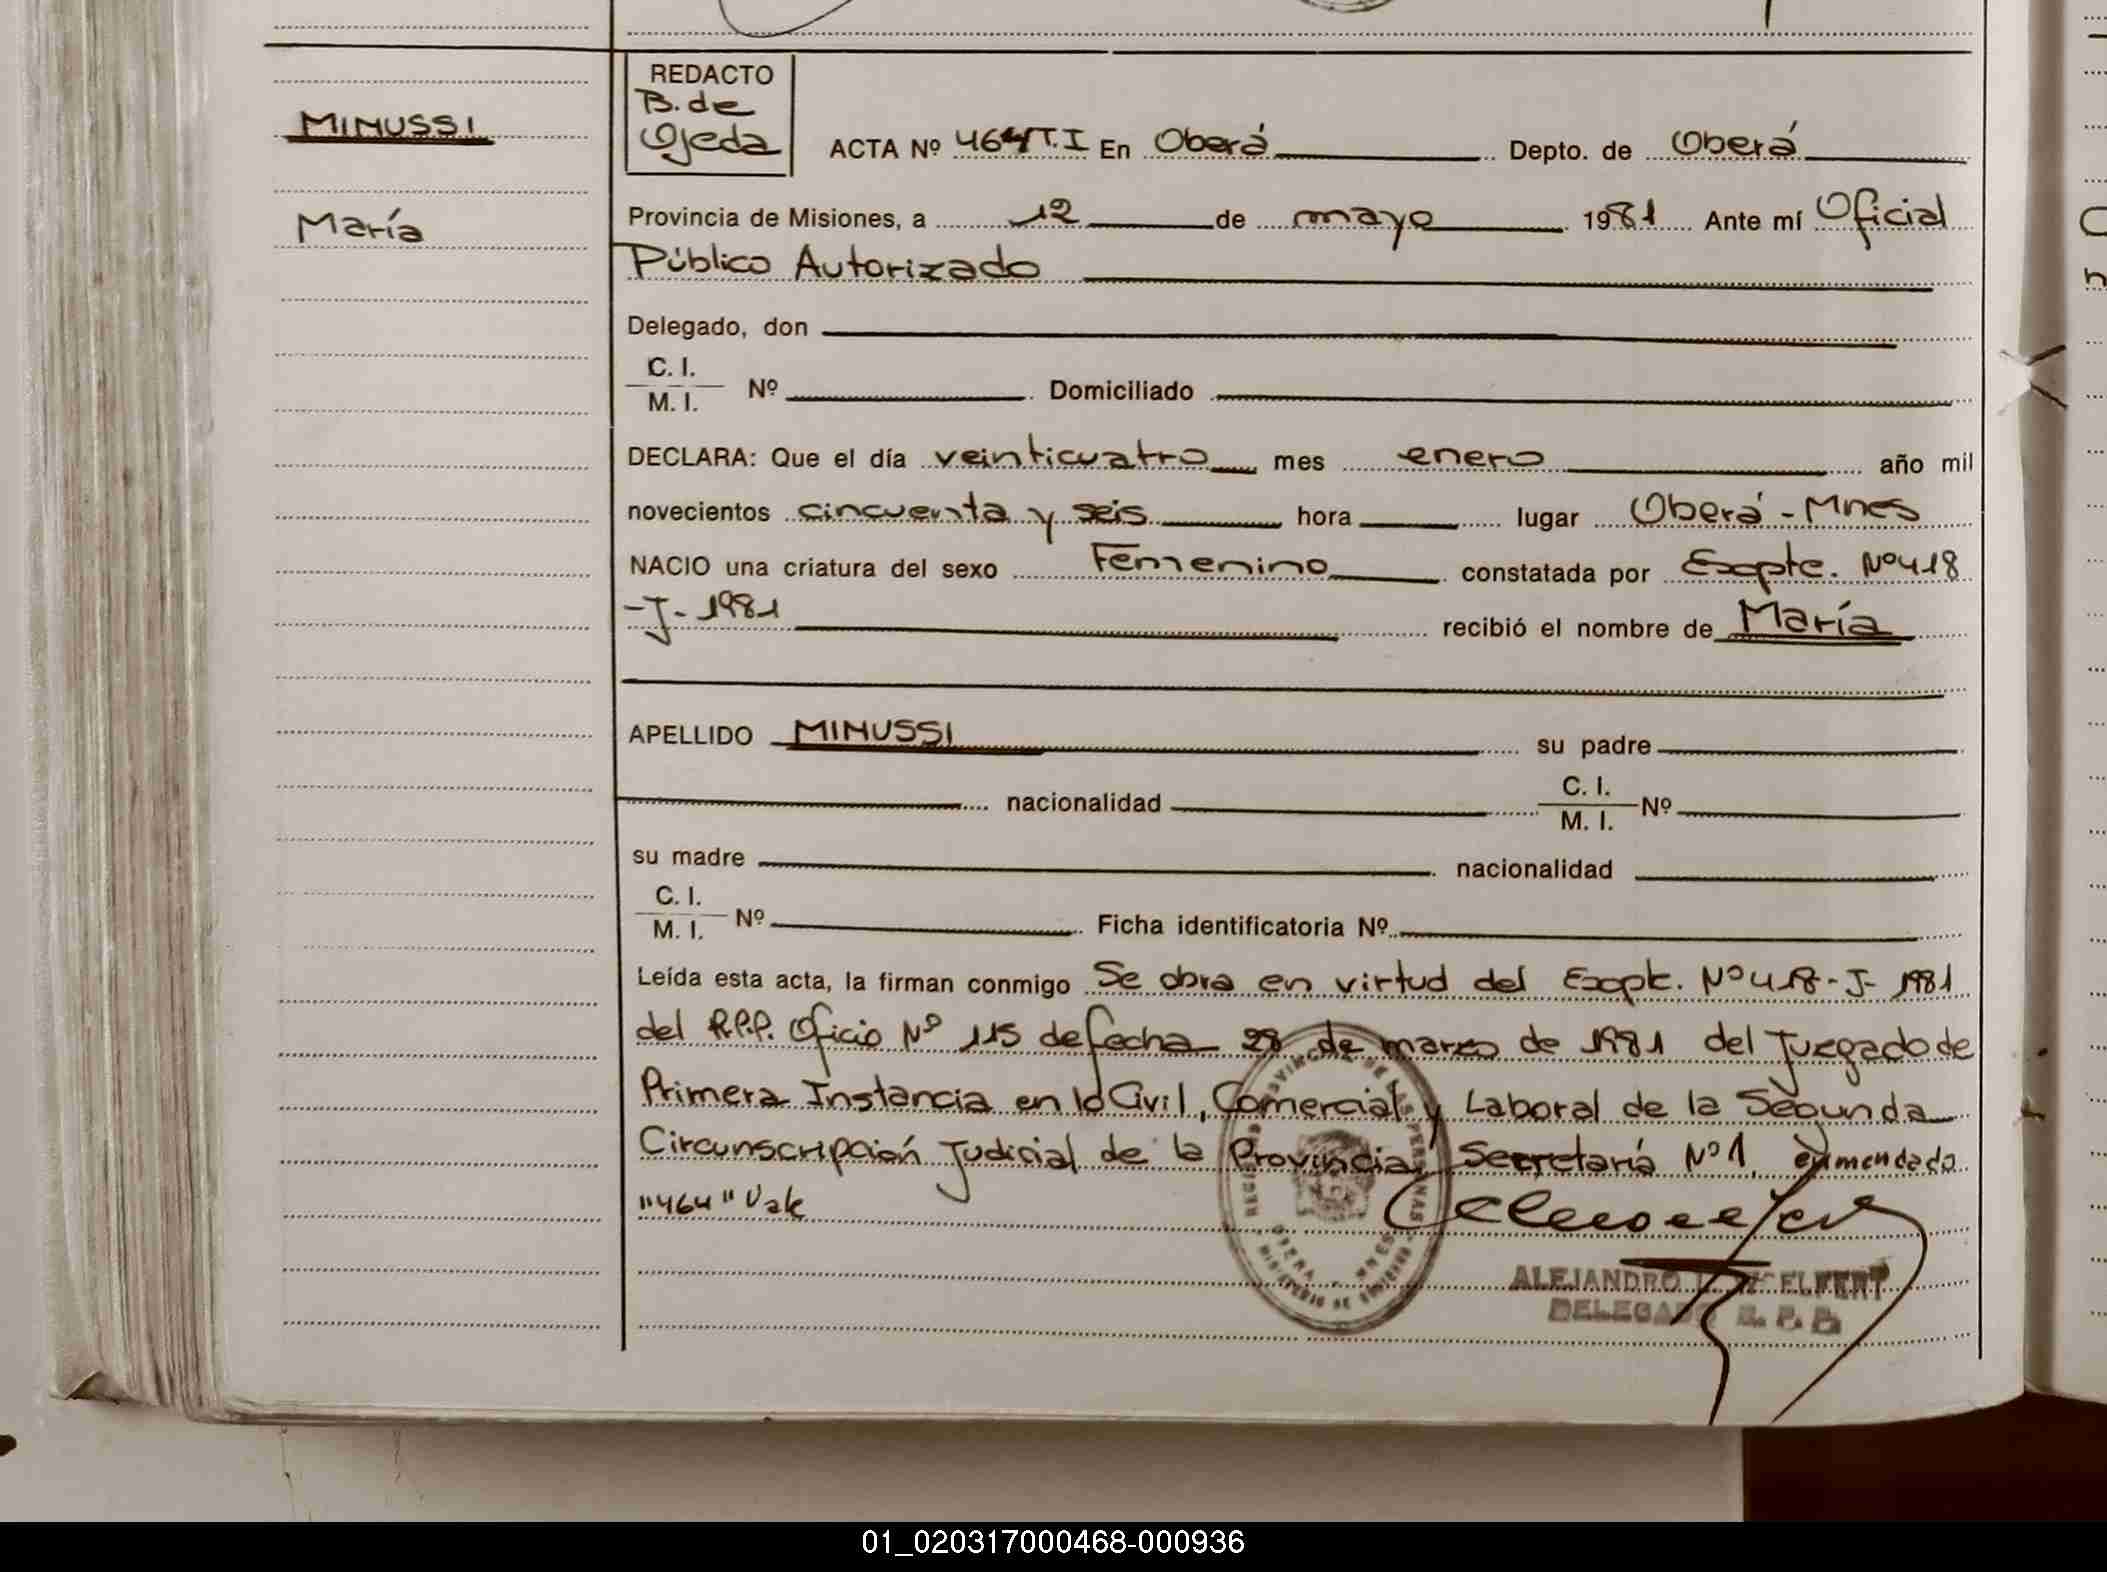 MINUSSI
María
REDACTO
B. de
Ojeda
ACTA Nº 464 T.I En Oberá Depto. de Oberá
Provincia de Misiones, a 12 de mayo 1981 Ante mí Oficial
Público Autorizado
Delegado, don
C. I.
M. I. Nº Domiciliado
DECLARA: Que el día veinticuatro mes enero año mil
novecientos cincuenta y seis hora lugar Oberá - Mnes
NACIO una criatura del sexo Femenino constatada por Expte. Nº 418
-J- 1981 recibió el nombre de María
APELLIDO MINUSSI su padre
nacionalidad C. I.
M. I. Nº
su madre nacionalidad
C. I.
M. I. Nº Ficha identificatoria Nº
Leída esta acta, la firman conmigo Se obra en virtud del Expte. Nº 418-J-1981
del R.P.P. Oficio Nº 115 de fecha 28 de marzo de 1981 del Juzgado de
Primera Instancia en lo Civil, Comercial y Laboral de la Segunda
Circunscripción Judicial de la Provincia, Secretaría Nº 1. enmendado
"464" Vale
OBERA - MNES
ALEJANDRO
DELEGADO R. P. P.
01_020317000468-000936